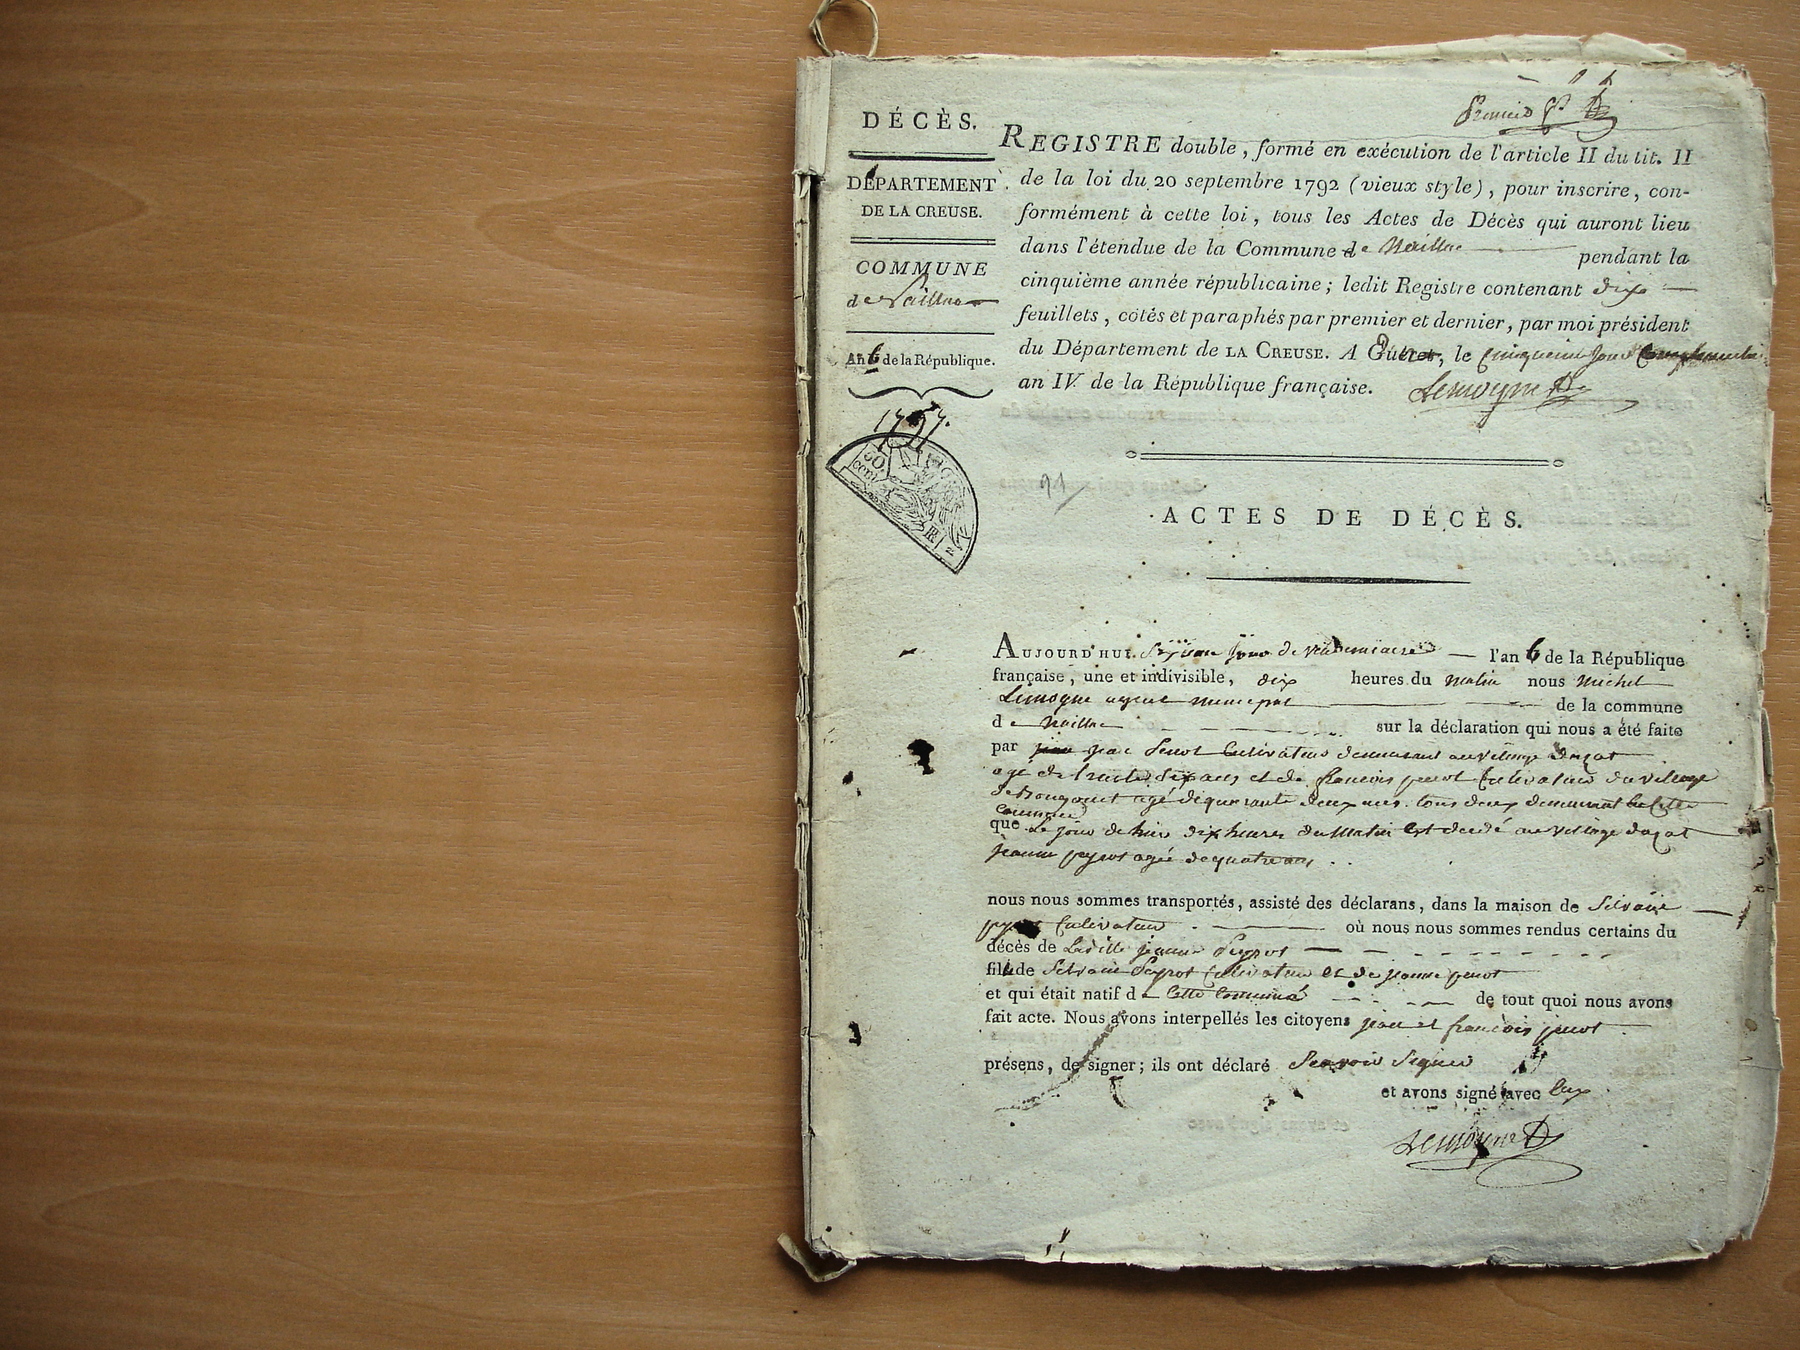 Premier
DÉCÈS.
DÉPARTEMENT
DE LA CREUSE.
COMMUNE
de Naillac
An 6 de la République.
1797.
50
CENT
RF
REGISTRE double, formé en exécution de l'article II du tit. II
de la loi du 20 septembre 1792 (vieux style), pour inscrire, con-
formément à cette loi, tous les Actes de Décès qui auront lieu
dans l'étendue de la Commune de Naillac pendant la
cinquième année républicaine; ledit Registre contenant dix
feuillets, cotés et paraphés par premier et dernier, par moi président
du Département de LA CREUSE. A Guéret, le cinquieme jour Complementaire
an IV de la République française. Lemoyne
91
ACTES DE DÉCÈS.
AUJOURD'HUI jour de vendemiaire l'an 6 de la République
française, une et indivisible, dix heures du matin nous michel
Lemogne agent municipal de la commune
de Naillac sur la déclaration qui nous a été faite
par jean penot Cultivateur demeurant au village dazat
agé de trente six ans et de francois penot Cultivateur du village
agé de quarante deux ans. tous deux demeurant en Cette
commune
que Le jour de hier dix heures du Matin Est decedé au village dazat
jeanne peyrot agée de quatre ans
nous nous sommes transportés, assisté des déclarans, dans la maison de Silvain
peyrot Cultivateur où nous nous sommes rendus certains du
décès de Ladille jeanne Peyrot
fille de Silvain Peyrot Cultivateur et de jeanne penot
et qui était natif de Cette Commune de tout quoi nous avons
fait acte. Nous avons interpellés les citoyens jean et francois penot
présens, de signer; ils ont déclaré Scavoir Signer
et avons signé avec Eux
Lemoyne